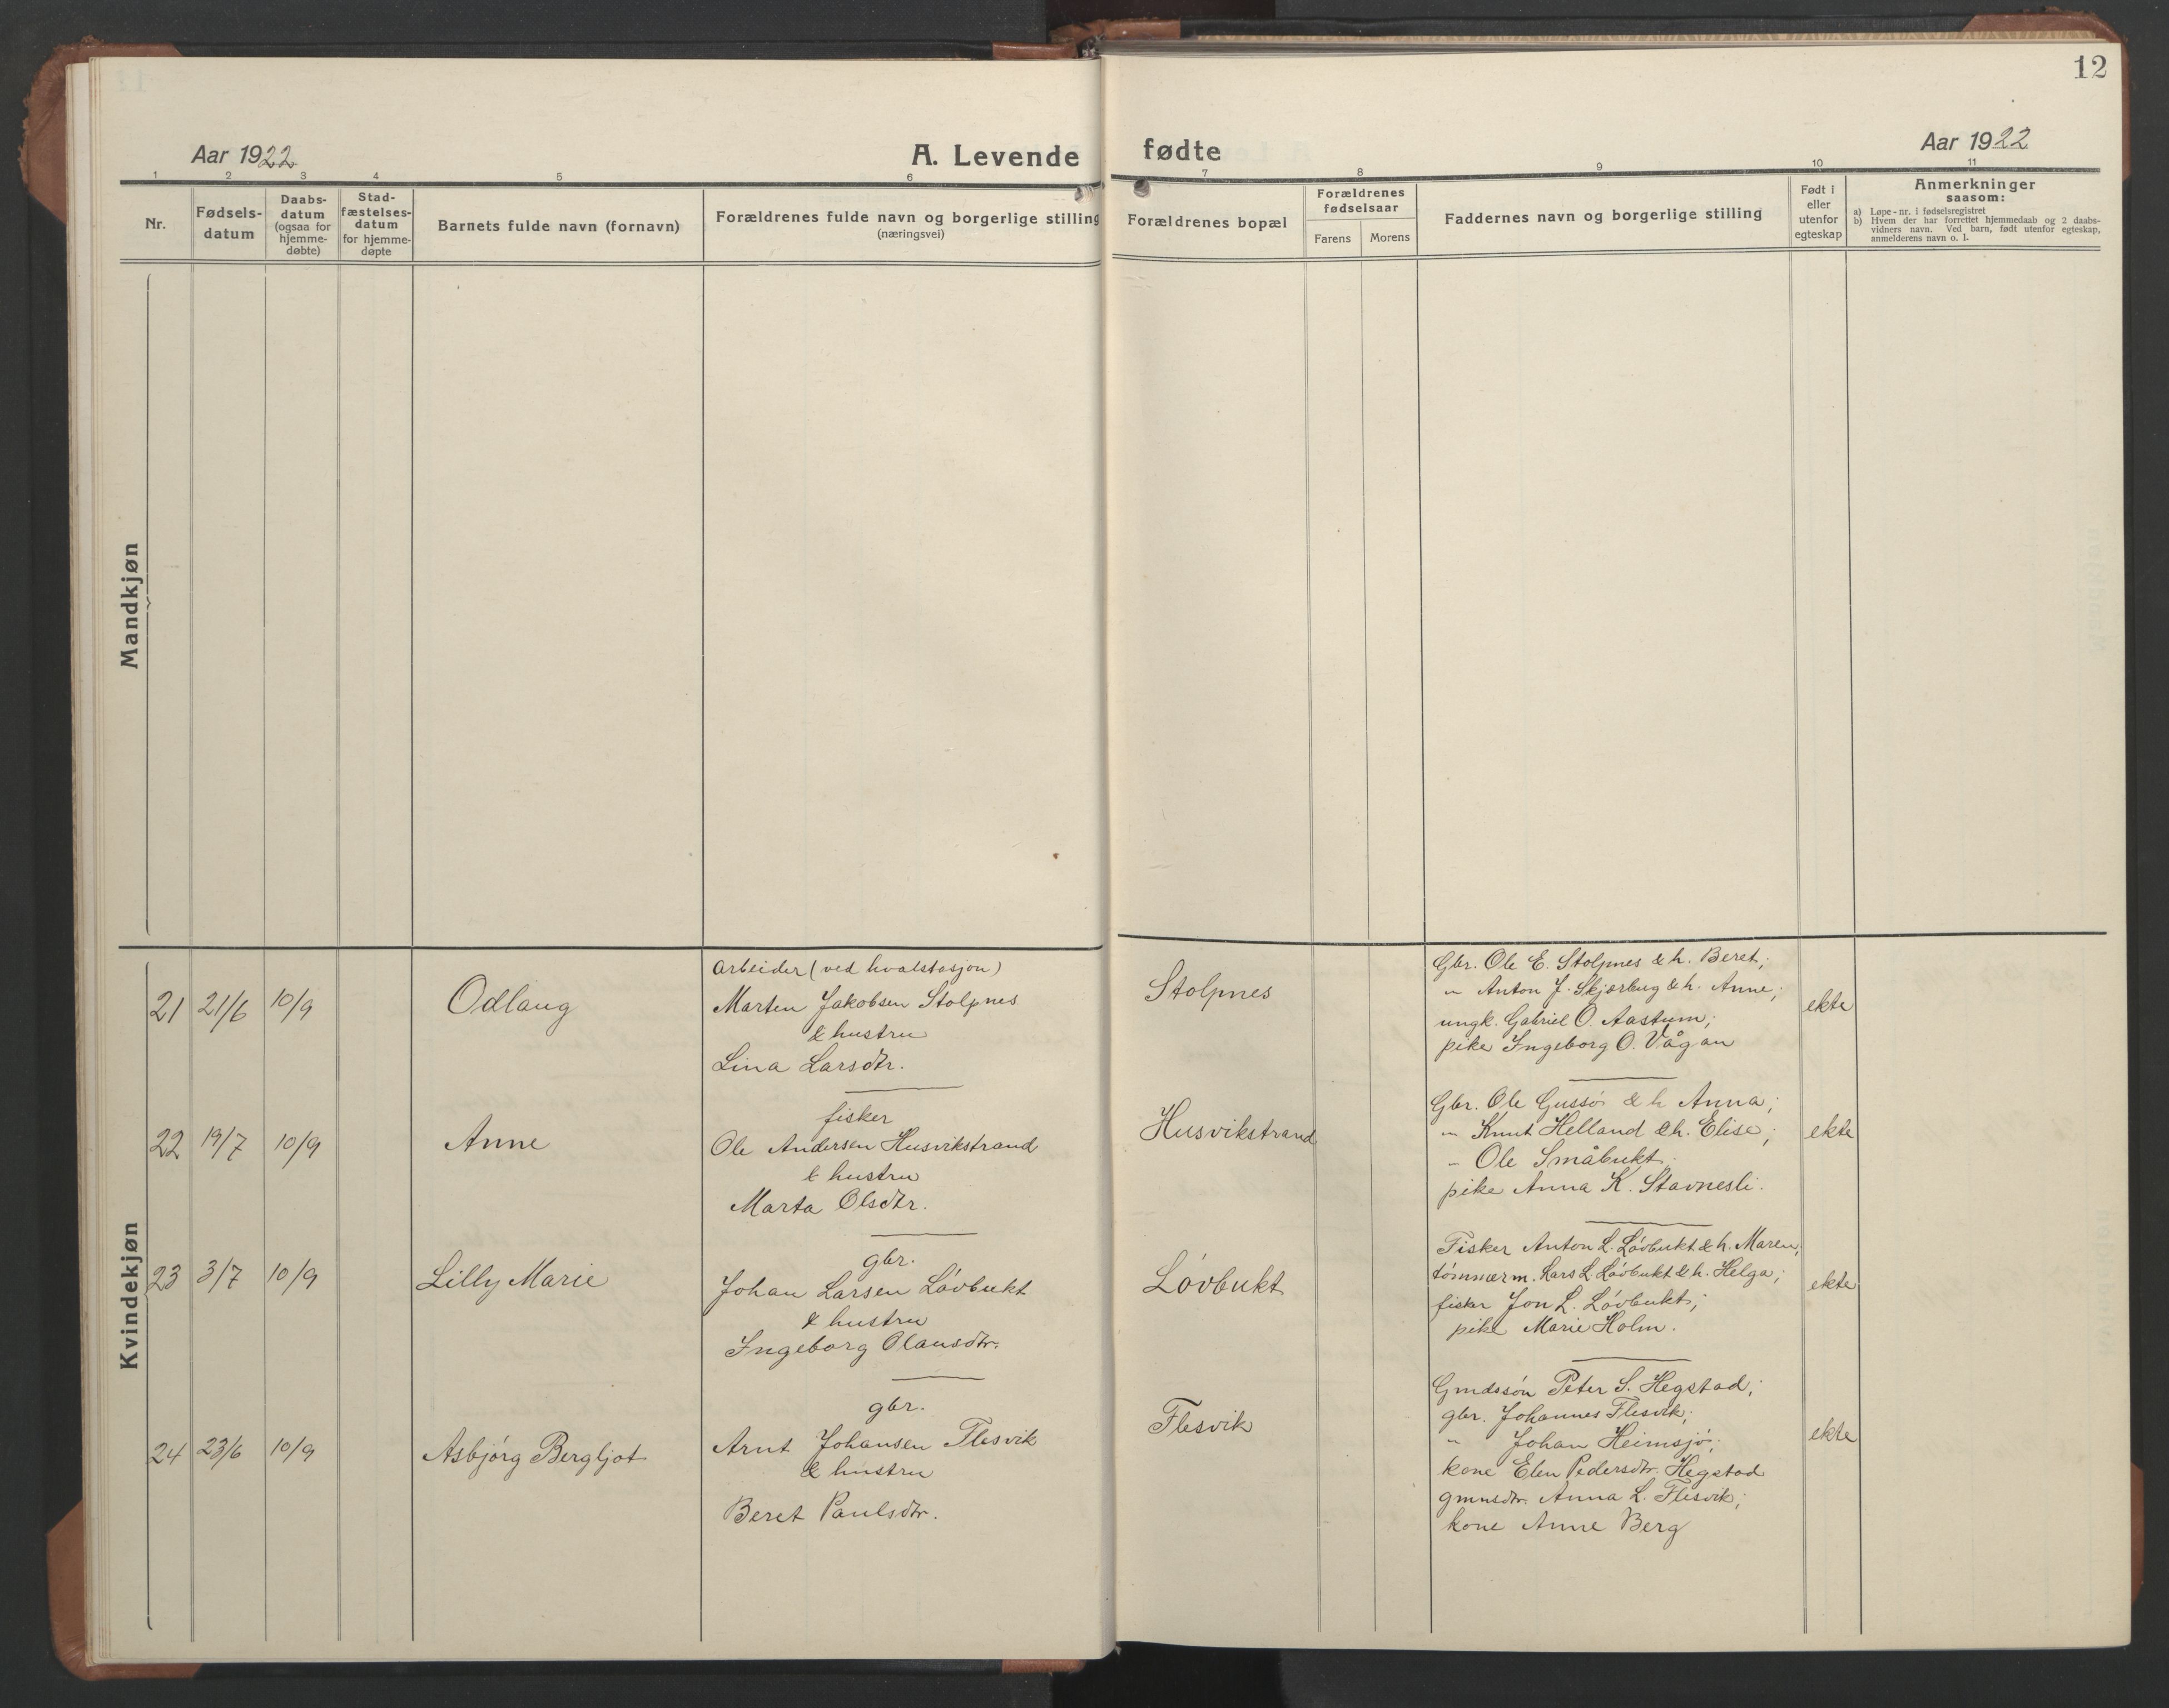 12
Aar 1922
A. Levende fødte
Aar 1922
1 2 3 4 5 6 7 8 9 10 11
Nr.
Fødsels-
datum
Daabs-
datum
(ogsaa for
hjemme-
døbte)
Stad-
fæstelses-
datum
for hjemme-
døpte
Barnets fulde navn (fornavn)
Forældrenes fulde navn og borgerlige stilling
(næringsvei)
Forældrenes bopæl
Forældrenes
fødselsaar
Farens Morens
Faddernes navn og borgerlige stilling
Født i
eller
utenfor
egteskap
Anmerkninger
saasom:
a) Løpe-nr. i fødselsregistret
b) Hvem der har forrettet hjemmedaab og 2 daabs-
vidners navn. Ved barn, født utenfor egteskap,
anmelderens navn o. l.
Mandkjøn
Kvindekjøn
21 21/6 10/9 Odlaug
arbeider (ved hvalstasjon)
Marten Jakobsen Stolpnes
& hustru
Lina Larsdtr.
Stolpnes
Gbr. Ole E. Stolpnes & h. Beret;
" Anton J. Skjærbug & h. Anne;
ungk. Gabriel O. Aastum;
pike Ingeborg O. Vågan
ekte
22 19/7 10/9 Anne
fisker
Ole Andersen Husvikstrand
& hustru
Marta Olsdtr.
Husvikstrand
Gbr. Ole Gussø & h Anna;
" Knut Helland & h. Elise;
- Ole Småbukt.
pike Anna K. Stavnesli.
ekte
23 3/7 10/9 Lilly Marie
gbr.
Johan Larsen Lóvbukt
& hustru
Ingeborg Olausdtr.
Lóvbukt
Fisker Anton L. Lóvbukt & h. Maren;
tómmerm. Lars L. Lóvbukt & h. Helga;
fisker Jon L. Lóvbukt;
pike Marie Holm.
ekte
24 23/6 10/9 Asbjórg Bergljot
gbr.
Arnt Johansen Flesvik
& hustru
Beret Paulsdtr.
Flesvik
Gmdssón Peter S. Hegstad;
gbr. Johannes Flesvik;
" Johan Heimsjó;
kone Elen Pedersdtr. Hegstad
gmnsdtr. Anna L. Flesvik;
kone Anne Berg
ekte